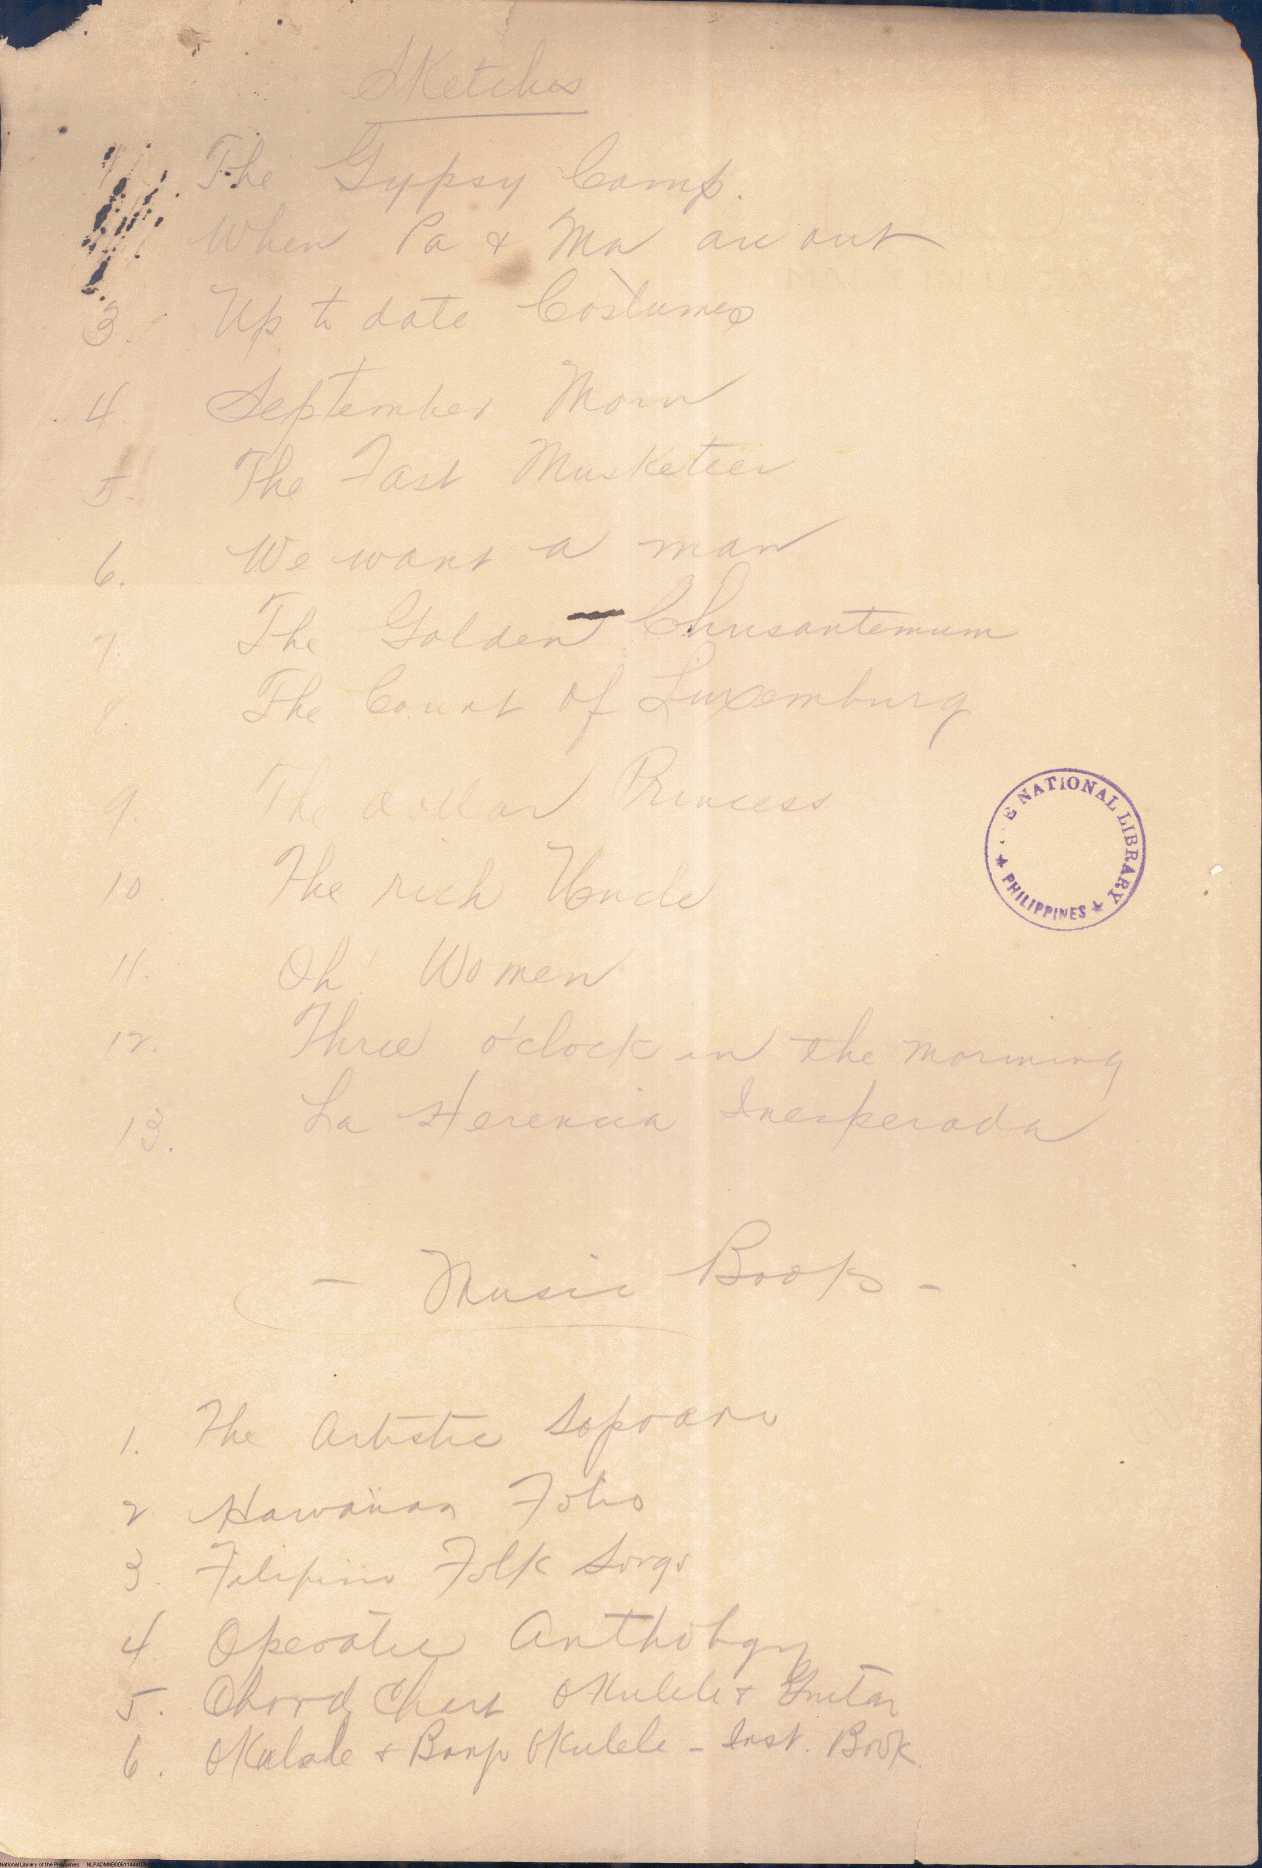 Sketches
The Gypsy Camp.
When Pa & Ma are out
3. Up to date Costumes
4. September Morn
5. The Last Musketeer
6. We want a man
7. The Golden Chrusantemum
8. The Count of Luxemburg
9. The dollar Princess
10. The rich Uncle
11. Oh! Women
12. Three o'clock in the morning
13. La Herencia Inesperada
- Music Books -
1. The Artistic Soprano
2 Hawaiian Folio
3. Filipino Folk Songs
4 Operatic Anthology
5. Chord Chart Okulele & Guitar
6. Okulele & Banjo Okulele - Inst. Book.
THE NATIONAL LIBRARY
PHILIPPINES
National Library of the Philippines